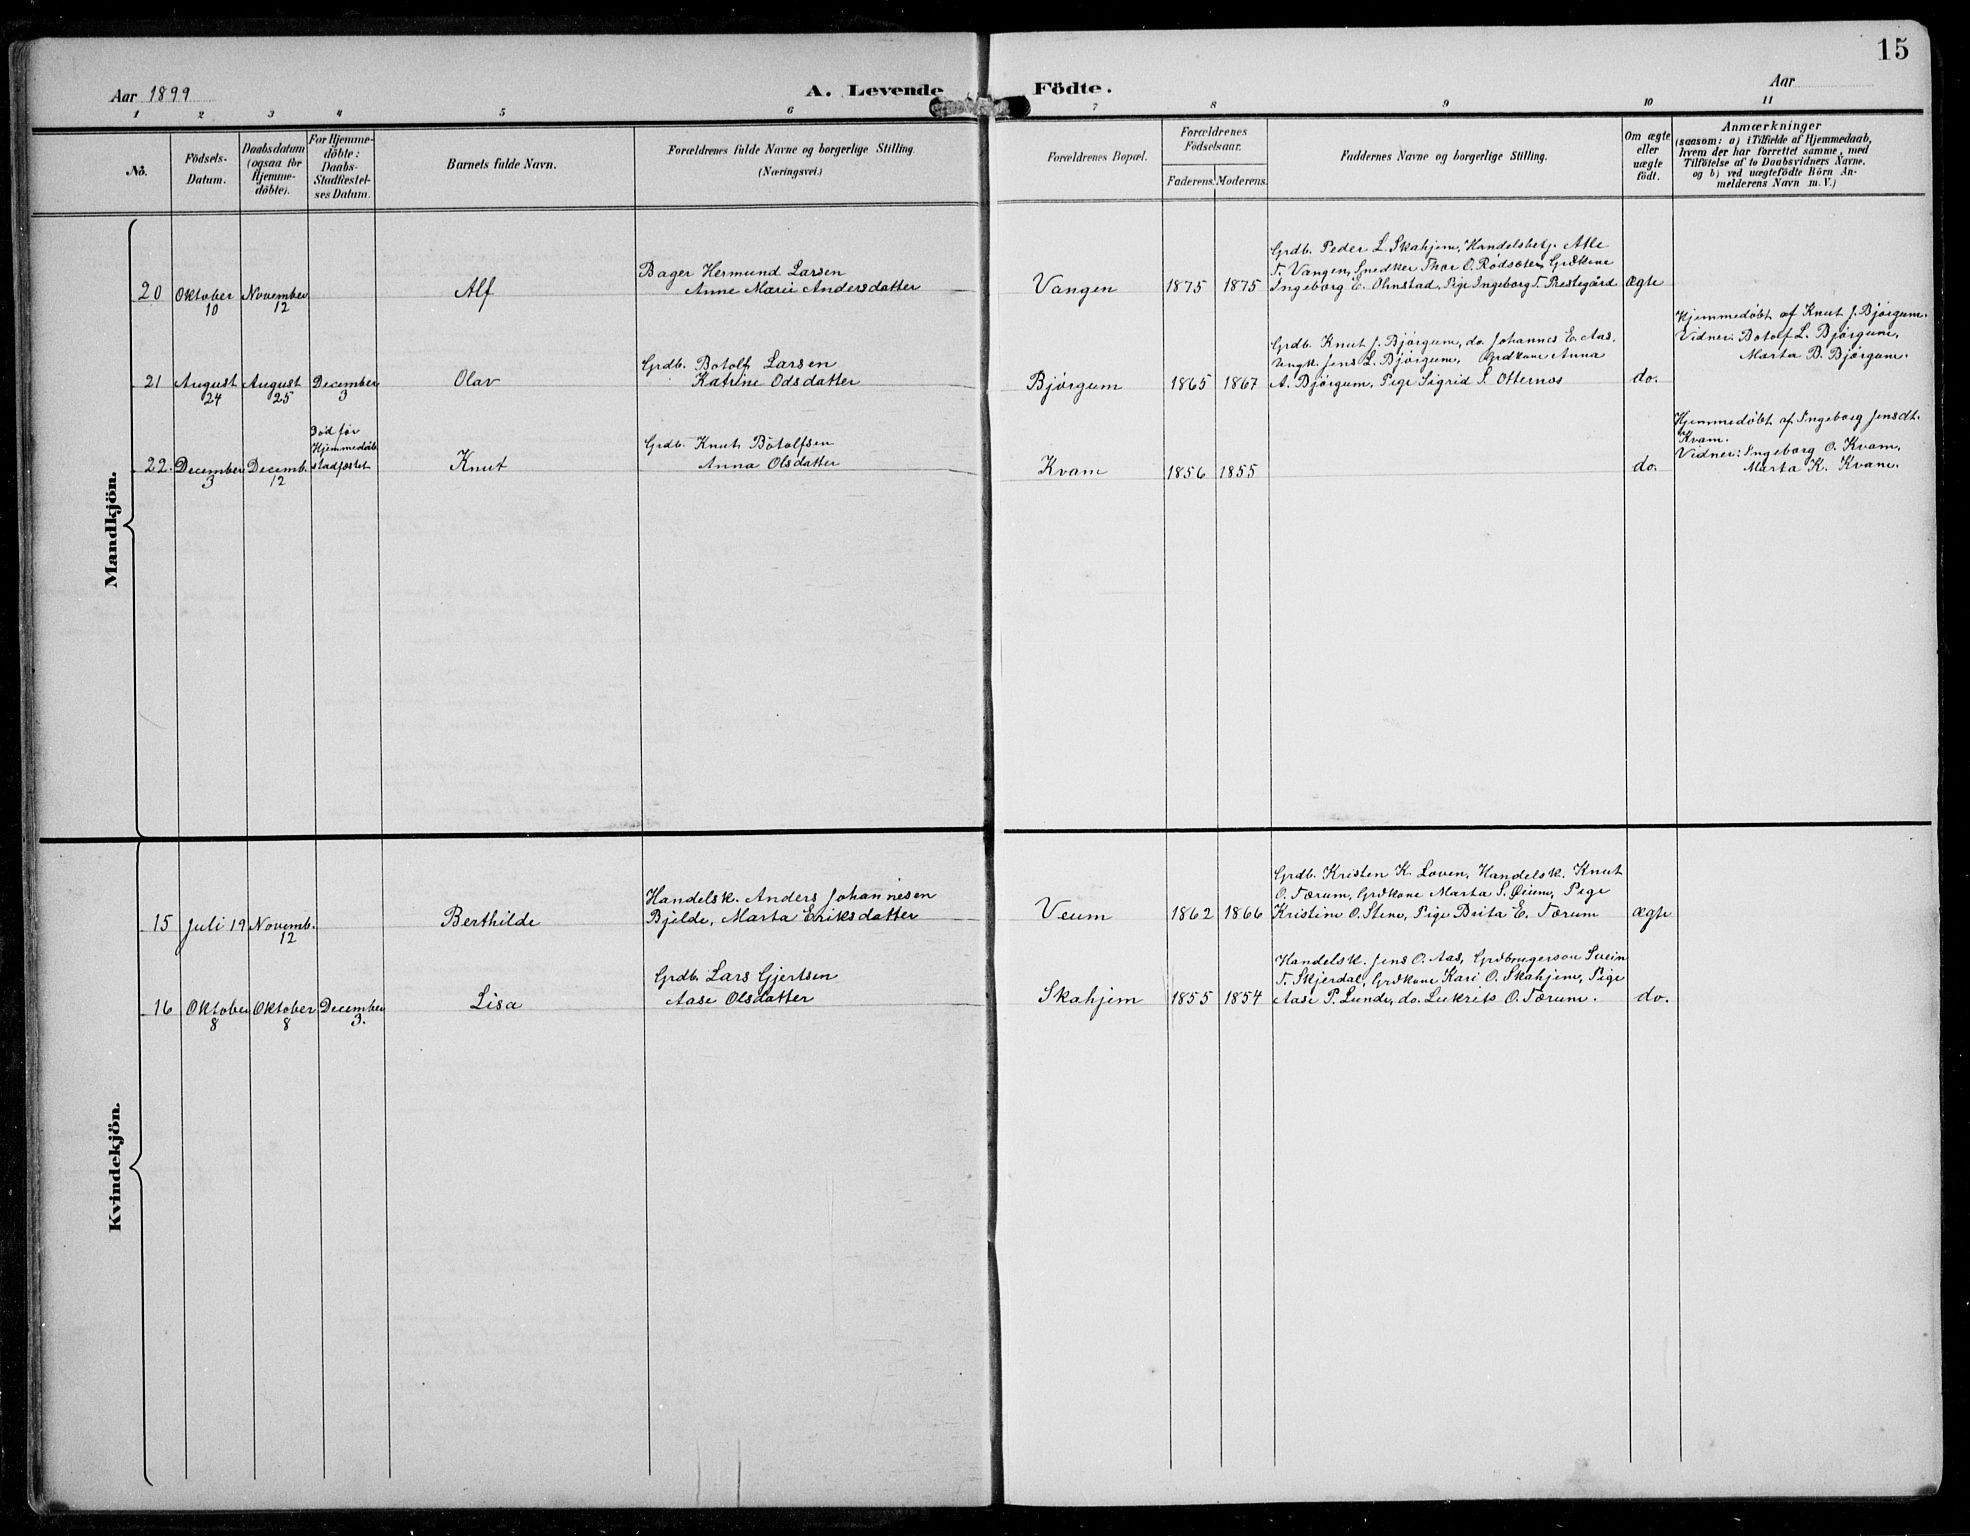 15
Aar 1899
A. Levende
Födte.
Aar
1 2 3 4 5 6 7 8 9 10 11
No.
Födsels-
Datum.
Daabsdatum
(ogsaa for
Hjemme-
döbte).
For Hjemme-
döbte:
Daabs-
Stadfæstel-
ses Datum.
Barnets fulde Navn.
Forældrenes fulde Navne og borgerlige Stilling.
(Næringsvei.)
Forældrenes Bopæl.
Forældrenes
Födselsaar.
Faderens. Moderens.
Faddernes Navne og borgerlige Stilling.
Om ægte
eller
uægte
födt.
Anmærkninger
(saasom: a) i Tilfælde af Hjemmedaab,
hvem der har forrettet samme, med
Tilföielse af to Daabsvidners Navne,
og b) ved uægtefödte Börn An-
melderens Navn m. V.)
Mandkjön.
20
Oktober
10
November
12
Alf
Bager Hermund Larsen
Anne Marie Andersdatter
Vangen
1875
1875
Grdb. Peder L. Skahjem, Handelsbetj. Atle
T. Vangen, Snedker Thor O. Rödseter, Grdkone
Ingeborg E. Ohnstad, Pige Ingeborg T. Prestegård
ægte
21
August
24
August
25
December
3
Olav
Grdb. Botolf Larsen
Katrine Odsdatter
Bjørgum
1865
1867
Grdb. Knut J. Bjørgum, do. Johannes E. Aas,
Ungk. Jens L. Bjørgum, Grdkone Anna
A. Bjørgum, Pige Sigrid S. Otternes
do.
Hjemmedøbt af Knut J. Bjørgum.
Vidner: Botolf L. Bjørgum,
Marta B. Bjørgum.
22.
December
3
Decemb.
12
Død før
Hjemmedåb
stadfæstet
Knut
Grdb. Knut Botolfsen
Anna Olsdatter
Kvam
1856
1855
do.
Hjemmedøbt af Ingeborg Jensdt.
Kvam.
Vidner: Ingeborg O. Kvam,
Marta K. Kvam.
Kvindekjön.
15
Juli 19
Novemb.
12
Berthilde
Handelsk. Anders Johannesen
Bjelde, Marta Eriksdatter
Veum
1862
1866
Grdb. Kristen K. Loven, Handelsk. Knut
O. Tærum, Grdkone Marta S. Øium, Pige
Kristine O. Stene, Pige Brita E. Tærum
ægte
16
Oktober
8
Oktober
8
December
3.
Lisa
Grdb. Lars Gjertsen
Aase Olsdatter
Skahjem
1855
1854
Handelsk. Jens O. Aas, Grdbrugerson Svein
T. Skjerdal, Grdkone Kari O. Skahjem, Pige
Aase P. Lunde, do. Lukrits O. Tærum.
do.